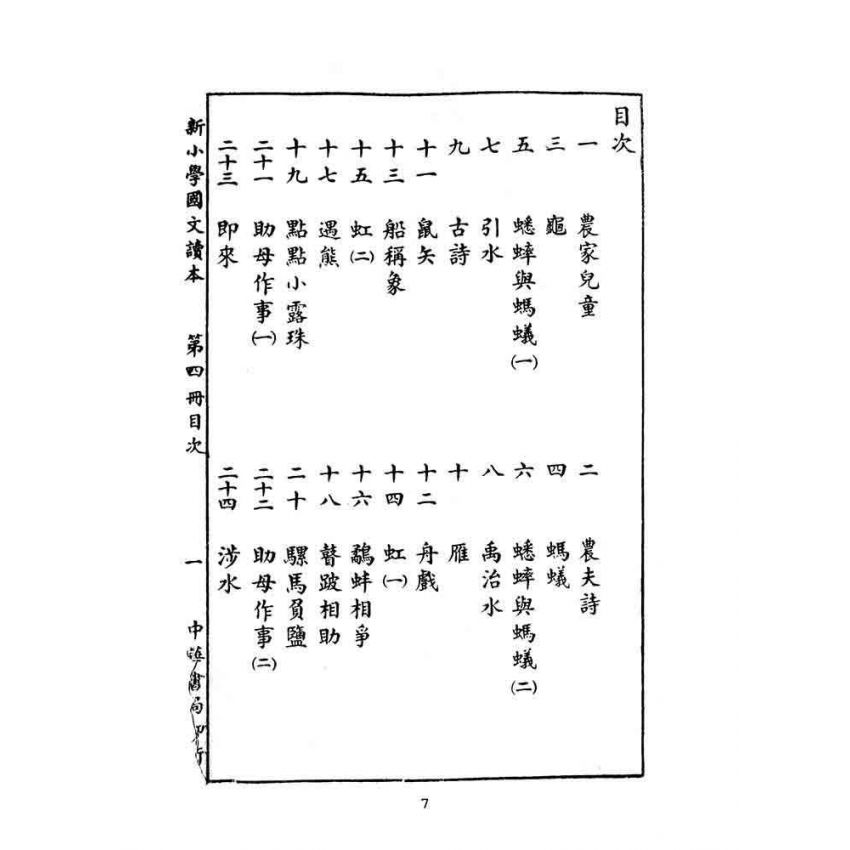 目次
一 農家兒童 二 農夫詩
三 龜 四 螞蟻
五 蟋蟀與螞蟻(一) 六 蟋蟀與螞蟻(二)
七 引水 八 禹治水
九 古詩 十 雁
十一 鼠矢 十二 舟戲
十三 船稱象 十四 虹(一)
十五 虹(二) 十六 鷸蚌相爭
十七 遇熊 十八 瞽跛相助
十九 點點小露珠 二十 騾馬負鹽
二十一 助母作事(一) 二十二 助母作事(二)
二十三 即來 二十四 涉水
新小學國文讀本 第四冊目次 一 中 書局印行
7